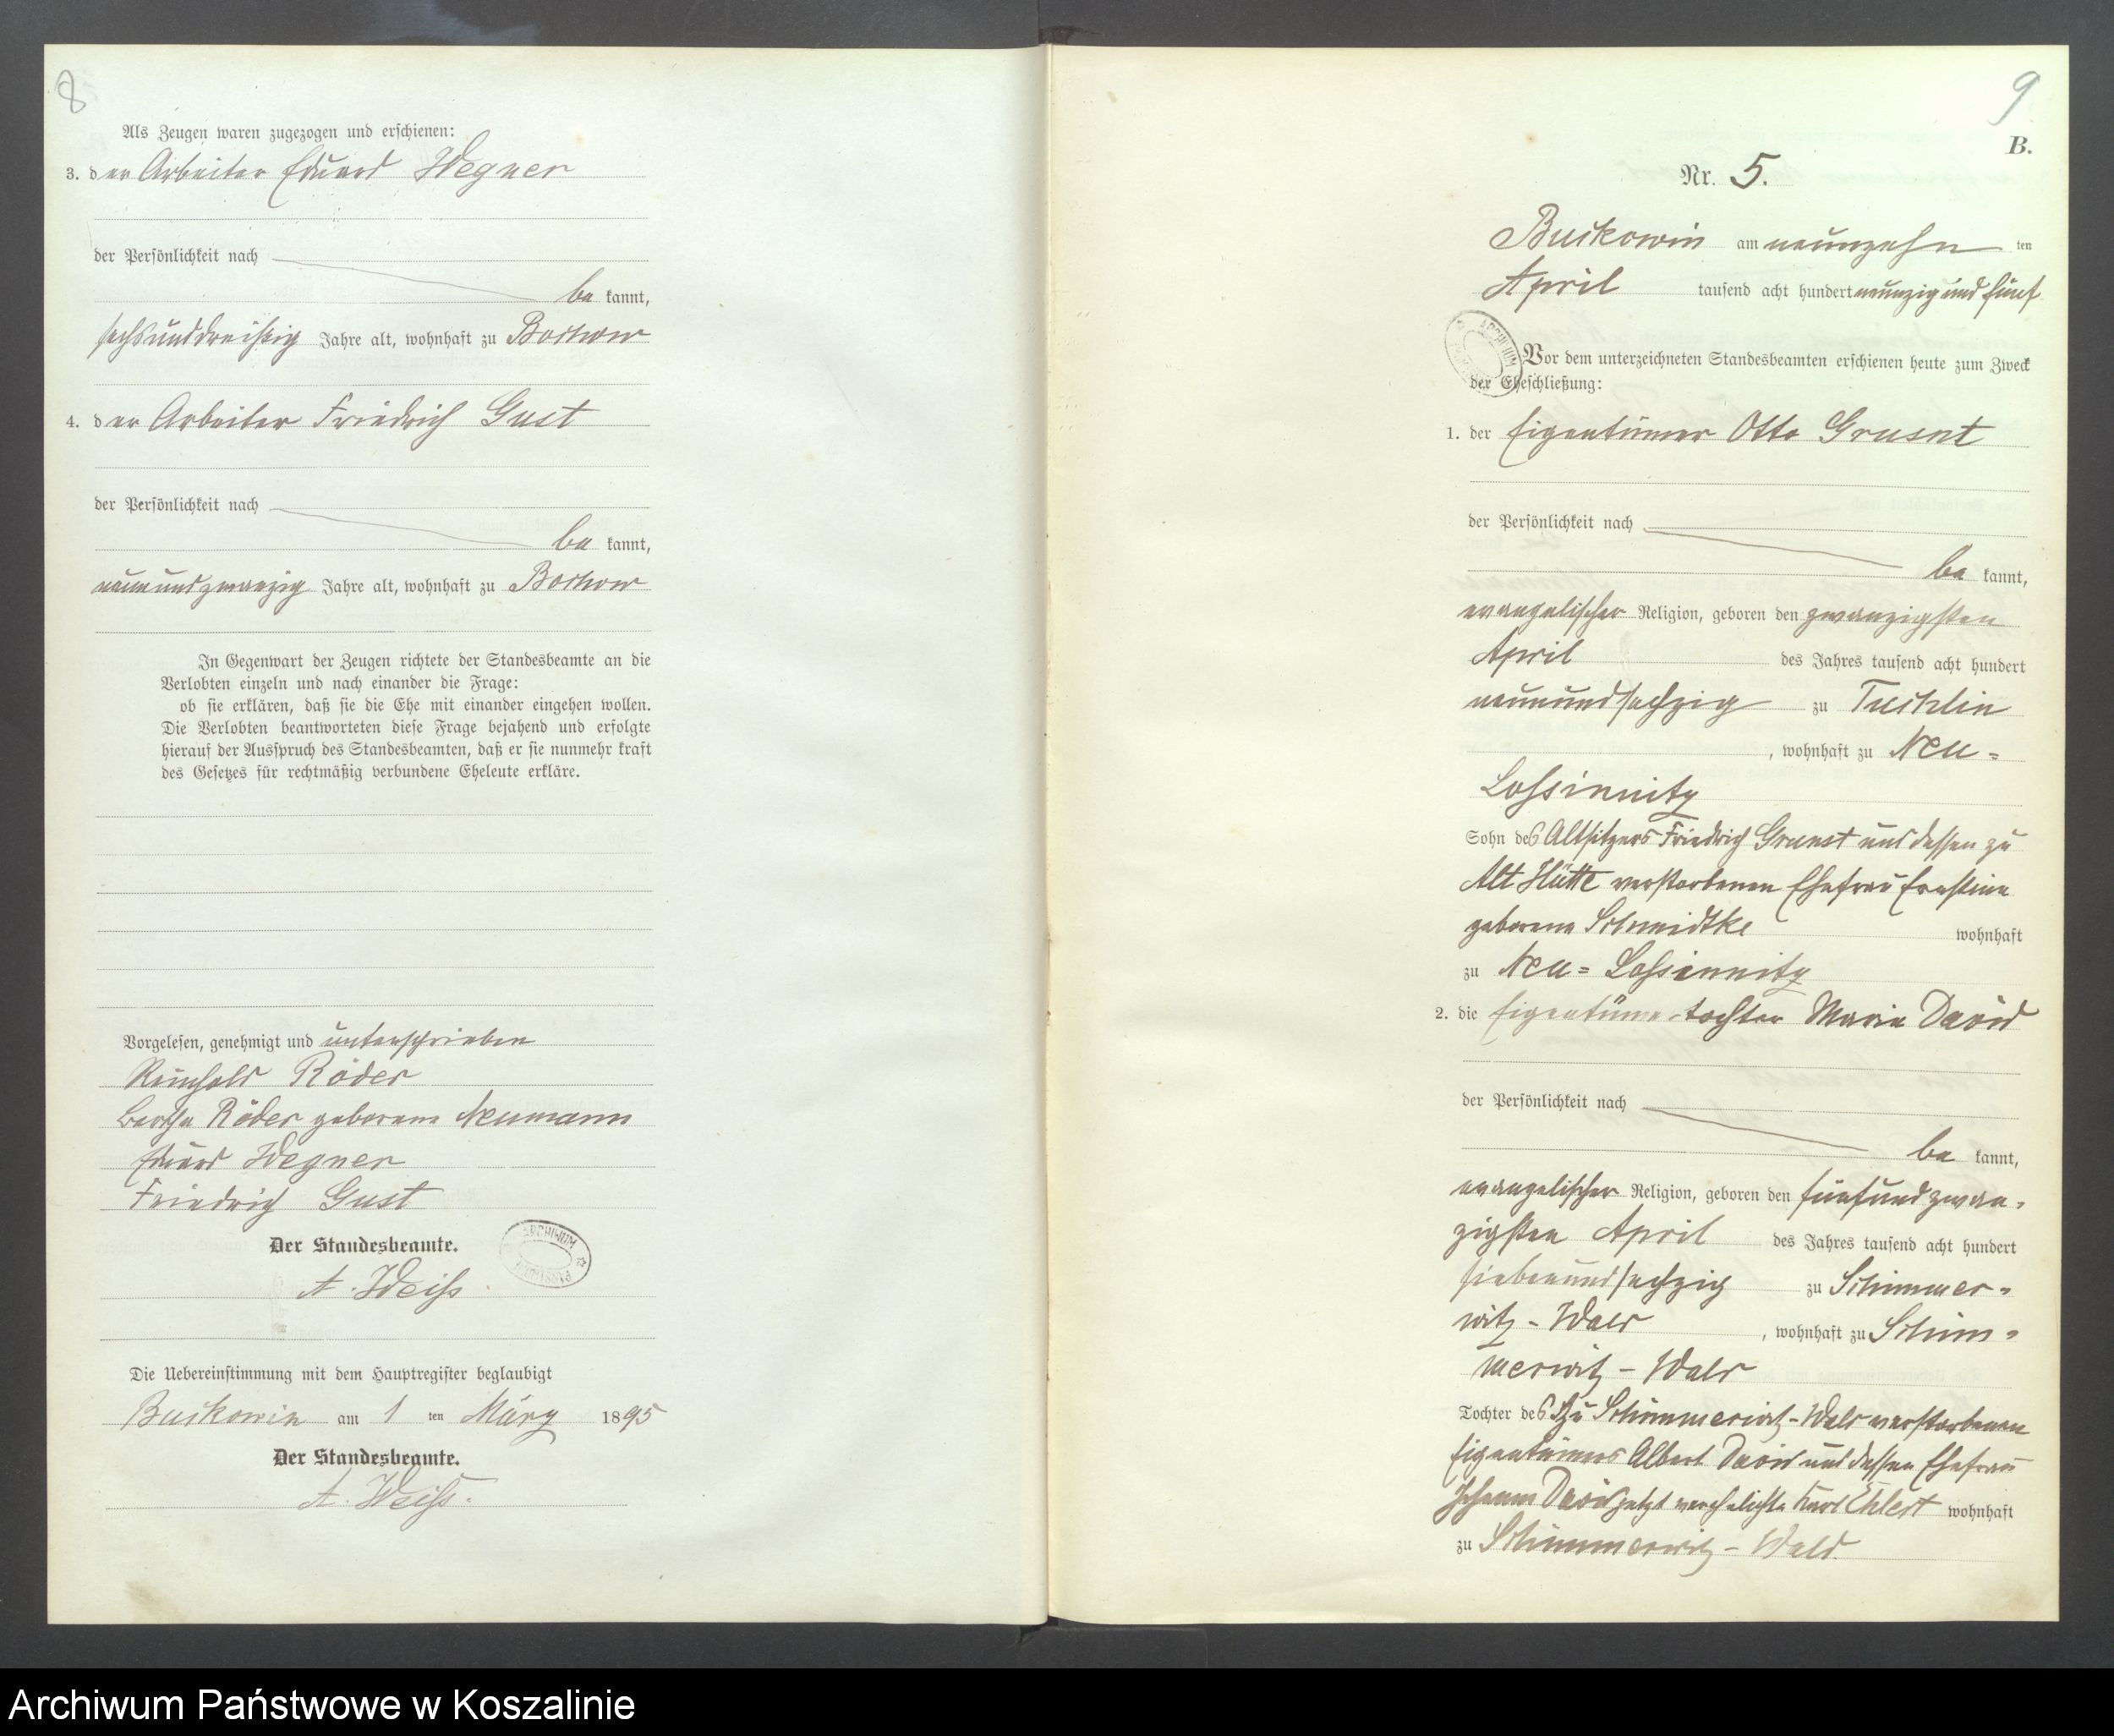 8
Als Zeugen waren zugezogen und erschienen:
3. der Arbeiter Eduard Wegner
der Persönlichkeit nach
be kannt,
sechsunddreißig Jahre alt, wohnhaft zu Bochow
4. der Arbeiter Friedrich Gust
der Persönlichkeit nach
be kannt,
neunundzwanzig Jahre alt, wohnhaft zu Bochow
In Gegenwart der Zeugen richtete der Standesbeamte an die
Verlobten einzeln und nach einander die Frage:
ob sie erklären, daß sie die Ehe mit einander eingehen wollen.
Die Verlobten beantworteten diese Frage bejahend und erfolgte
hierauf der Ausspruch des Standesbeamten, daß er sie nunmehr kraft
des Gesetzes für rechtmäßig verbundene Eheleute erkläre.
Vorgelesen, genehmigt und unterschrieben
Reinhold Röder
Bertha Röder geborene Neumann
Eduard Wegner
Friedrich Gust
Der Standesbeamte.
A. Weiß
ARCHIWUM
Die Uebereinstimmung mit dem Hauptregister beglaubigt
Buckowin am 1 ten März 1895
Der Standesbeamte.
A. Weiß.
9
B.
Nr. 5.
Buckowin am neunzehn ten
April tausend acht hundert neunzig und fünf
ARCHIWUM
Vor dem unterzeichneten Standesbeamten erschienen heute zum Zweck
der Eheschließung:
1. der Eigentümer Otto
der Persönlichkeit nach
be kannt,
evangelischer Religion, geboren den zwanzigsten
April des Jahres tausend acht hundert
neunundsechzig zu Tuchlin
, wohnhaft zu Neu=
Lossinnitz
Sohn des Altsitzers Friedrich und dessen zu
Alt Hütte verstorbenen Ehefrau Ernstine
geborene Schmidtke wohnhaft
zu Neu=Lossinnitz
2. die Eigentümertochter Marie David
der Persönlichkeit nach
be kannt,
evangelischer Religion, geboren den fünfundzwan=
zigsten April des Jahres tausend acht hundert
siebenundsechzig zu Schimmer=
witz-Wald , wohnhaft zu Schim=
merwitz-Wald
Tochter des zu Schimmerwitz-Wald verstorbenen
Eigentümers Albert David und dessen Ehefrau
David jetzt verehelichte Karl Ehlert wohnhaft
zu Schimmerwitz-Wald.
Archiwum Państwowe w Koszalinie